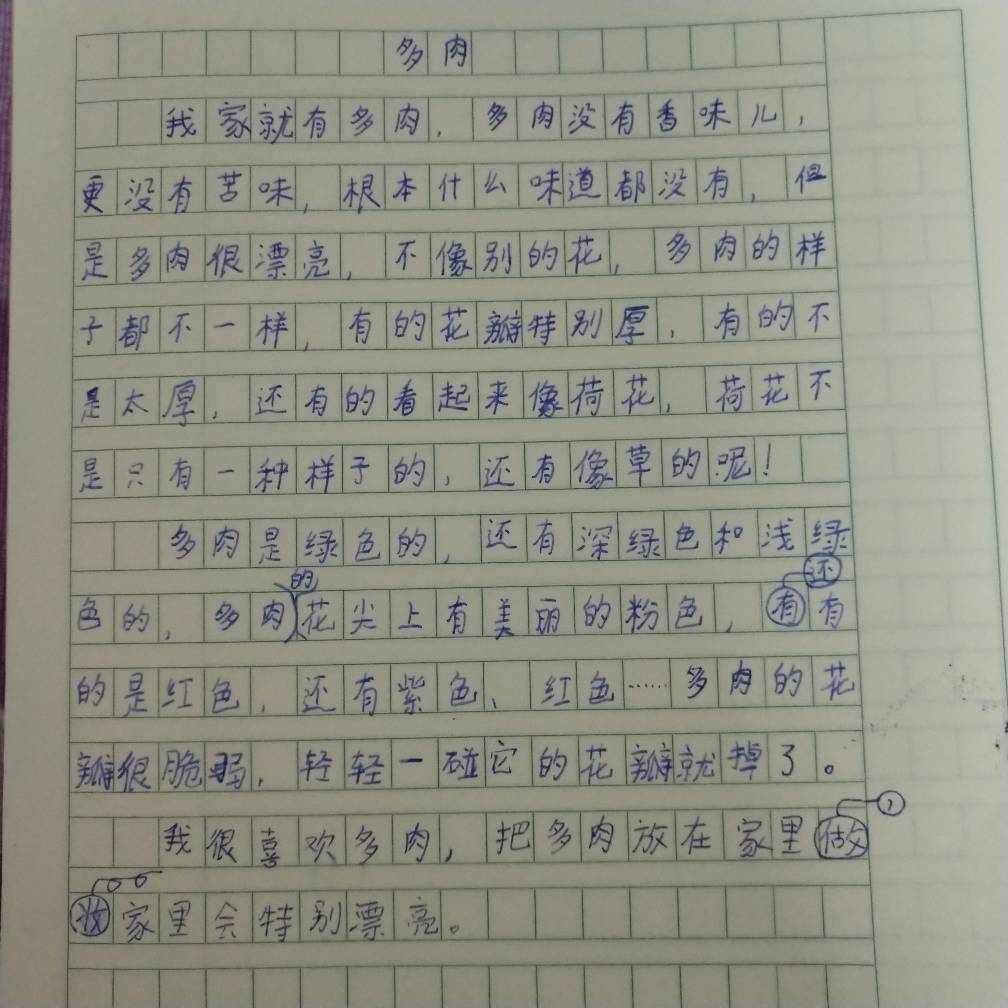 多肉
我家就有多肉，多肉没有香味儿，
更没有苦味，根本什么味道都没有，但
是多肉很漂亮，不像别的花，多肉的样
子都不一样，有的花瓣特别厚，有的不
是太厚，还有的看起来像荷花，荷花不
是只有一种样子的，还有像草的呢！
多肉是绿色的，还有深绿色和浅绿
还
的
色的，多肉花尖上有美丽的粉色，有有
的是红色，还有紫色、红色……多肉的花
瓣很脆弱，轻轻一碰它的花瓣就掉了。
，
我很喜欢多肉，把多肉放在家里做
妆家里会特别漂亮。